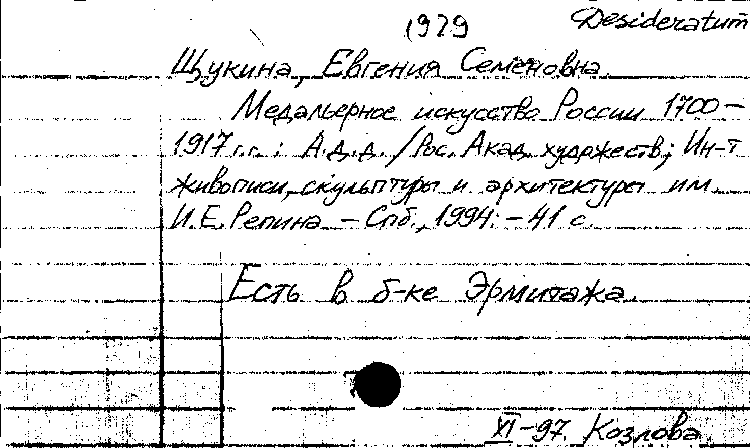 1929
Desideratum
Щукина, Евгения Семеновна.
Медальерное искусство России 1700–
1917 г.г. : А.д.д. / Рос. Акад. художеств; Ин-т
живописи, скульптуры и архитектуры им.
И.Е. Репина. – Спб., 1994. – 41 с.
Есть в б-ке Эрмитажа.
XI-97. Козлова